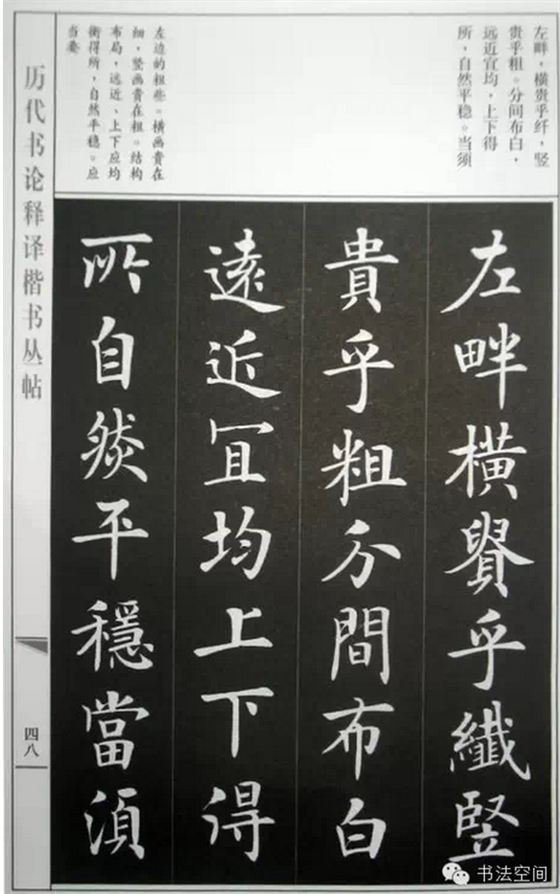 左畔，横贵乎纤，竖
贵乎粗。分间布白，
远近宜均，上下得
所，自然平稳。当须
左边的粗些。横画贵在
细，竖画贵在粗。结构
布局，远近、上下应均
衡得所，自然平稳。应
当要
左畔橫貴乎纖竪
貴乎粗分間布白
遠近冝均上下得
所自然平穩當須
历代书论释译楷书丛帖
四八
书法空间